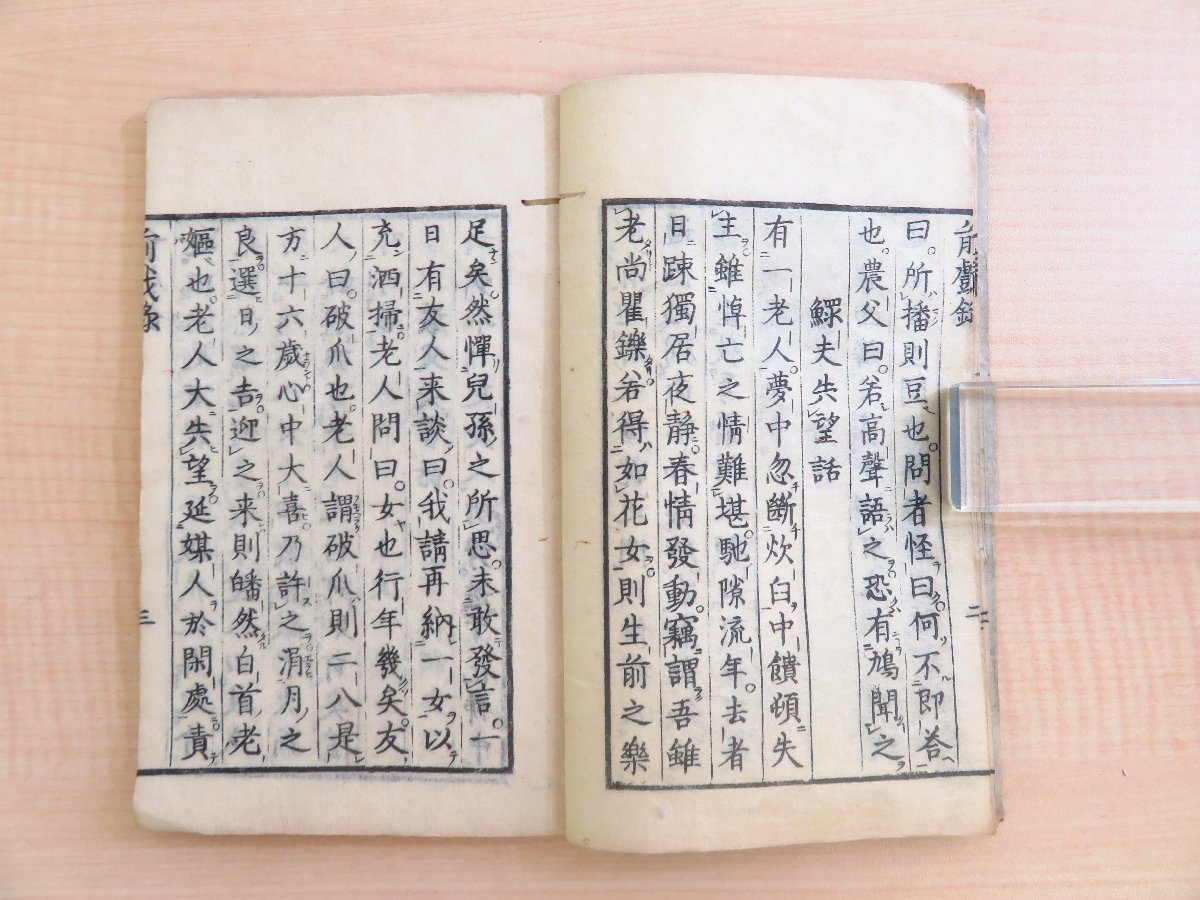 曰。所播則豆也。問者怪曰何不即荅
也。農父曰。若高聲語之恐有鳩聞之
鰥夫失望話
有一老人。夢中忽斷炊臼中饋頓失
主雖悼亡之情難堪。馳隙流年。去者
日踈獨居夜静春情發動。竊謂吾雖
老尚矍鑠若得如花女則生前之樂
二
足矣。然憚兒孫之所思。未敢發言。一
日有友人来談曰。我請再納一女以
充洒掃老人問曰。女也行年幾矣。友
人曰破爪也。老人謂破爪則二八是
方十六歲心中大喜乃許之涓月之
良選日之吉迎之来則皤然白首老
嫗也。老人大失望延媒人於閑處責
三